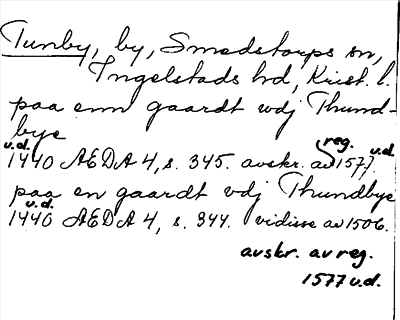 Tunby, by, Smedstorps sn,
Ingelstads hd, Krist. l.
paa enn gaardt wdj Thund-
bye
u.d. reg. u.d.
1440 AEDA 4, s. 345. avskr. av 1577
paa en gaardt vdj Thundbye
u.d.
1440 AEDA 4, s. 344. vidisse av 1506.
avskr. av reg.
1577 u.d.